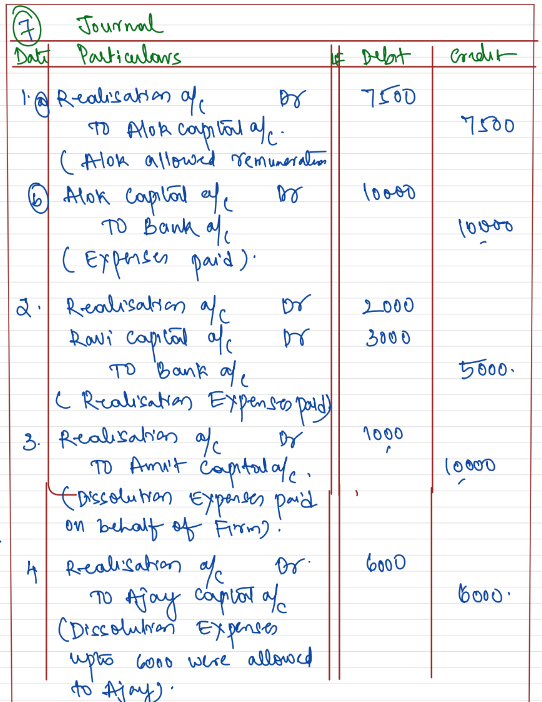 7 Journal
Date Particulars LF Debit Credit
1. a Realisation a/c Dr 7500
TO Alok capital a/c. 7500
( Alok allowed remuneration
b Alok Capital a/c Dr 10000
TO Bank a/c 10000
( Expenses paid ).
2. Realisation a/c Dr 2000
Ravi Capital a/c Dr 3000
TO Bank a/c 5000.
( Realisation Expenses paid)
3. Realisation a/c Dr 1000
TO Amit Capital a/c. 10000
(Dissolution Expenses paid
on behalf of Firm).
4 Realisation a/c Dr. 6000
TO Ajay Capital a/c 6000.
(Dissolution Expenses
upto 6000 were allowed
to Ajay).